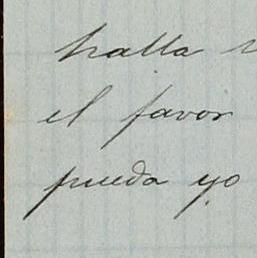 halla
el favor
pueda yo